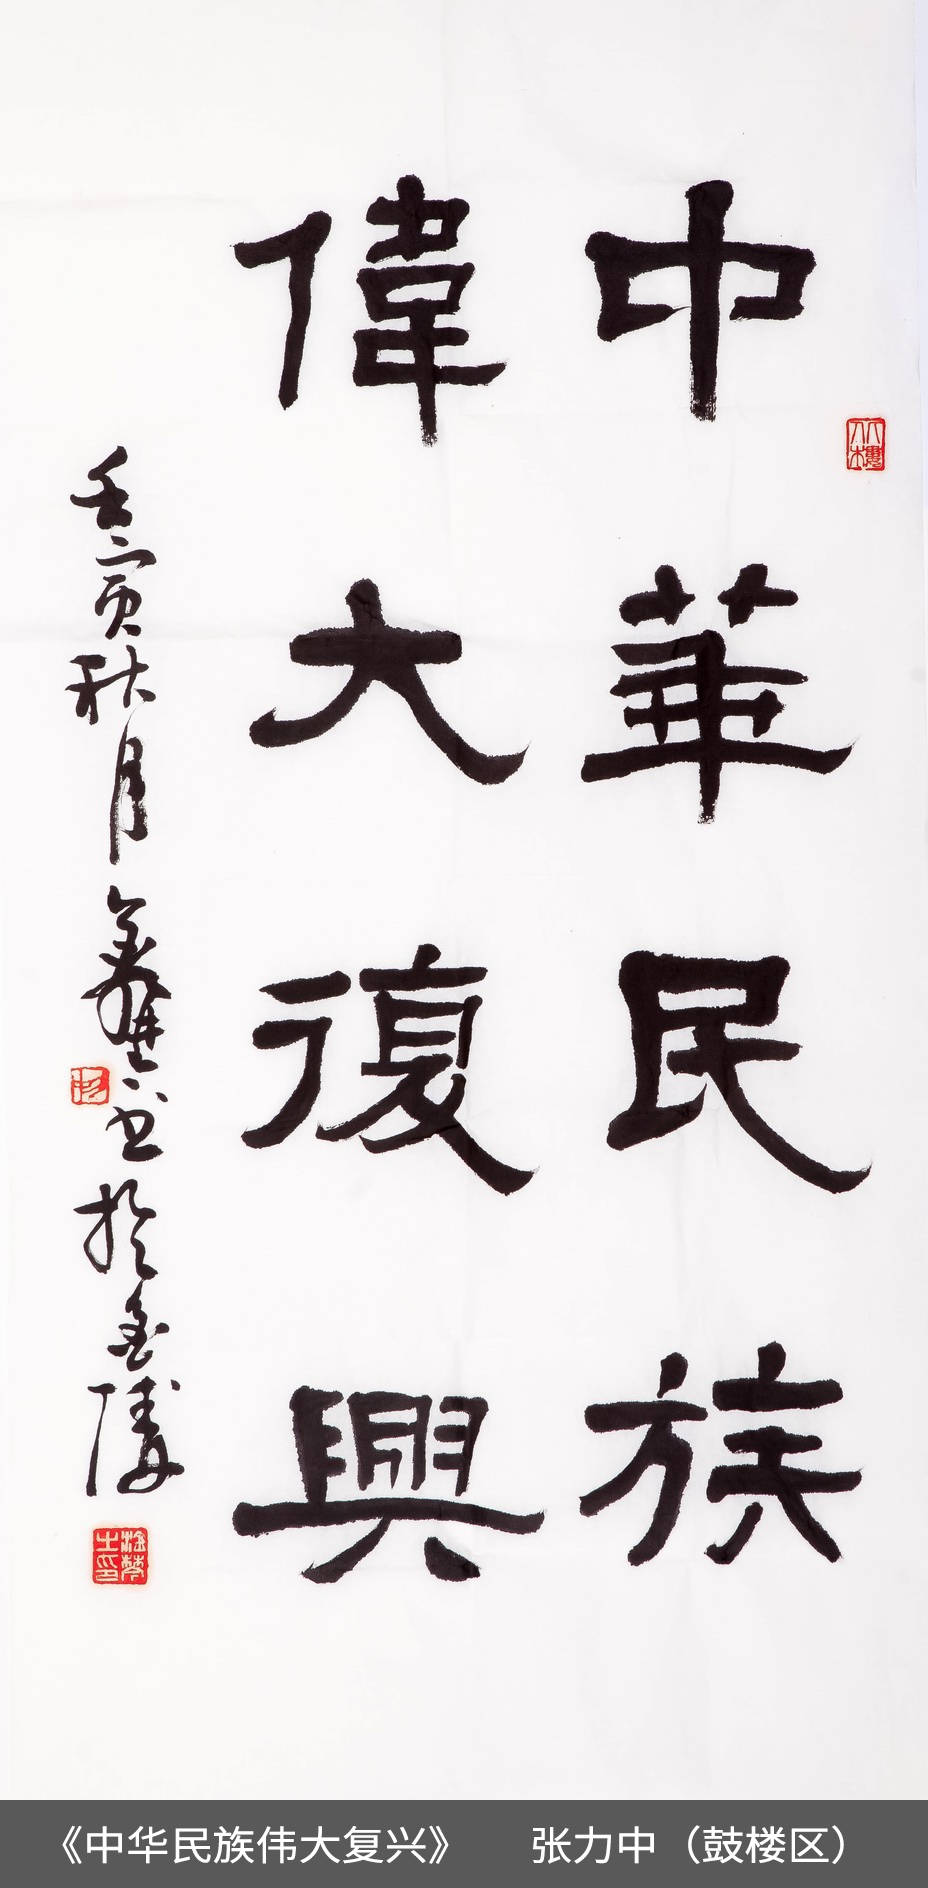 中華民族
偉大復興
壬寅秋月 書於金陵
《中华民族伟大复兴》 张力中（鼓楼区）